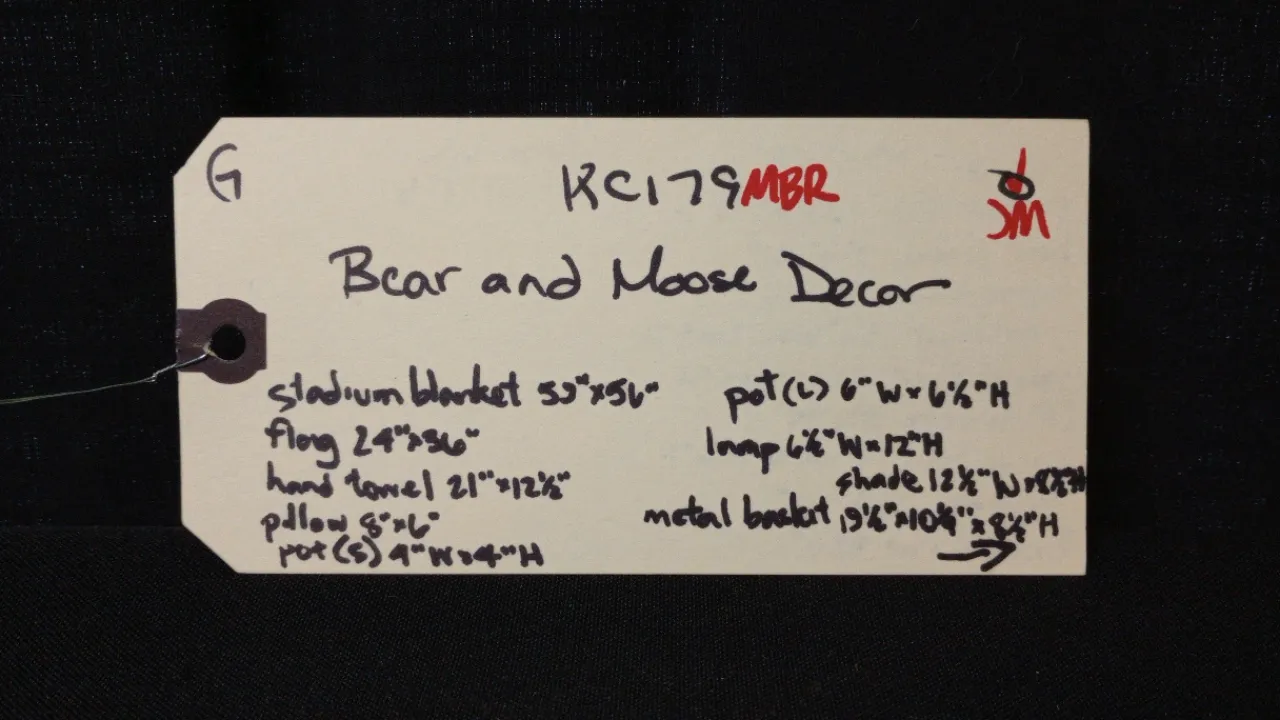 G
KC179MBR
JM
Bear and Moose Decor
stadium blanket 53"x56"
flag 24"x36"
hand towel 21"x12½"
pillow 8"x6"
pot(s) 4"Wx4"H
pot(L) 6"Wx6½"H
lamp 6½"Wx12"H
shade 12½"Wx8½"H
metal basket 19½"x10¼"x8½"H
→